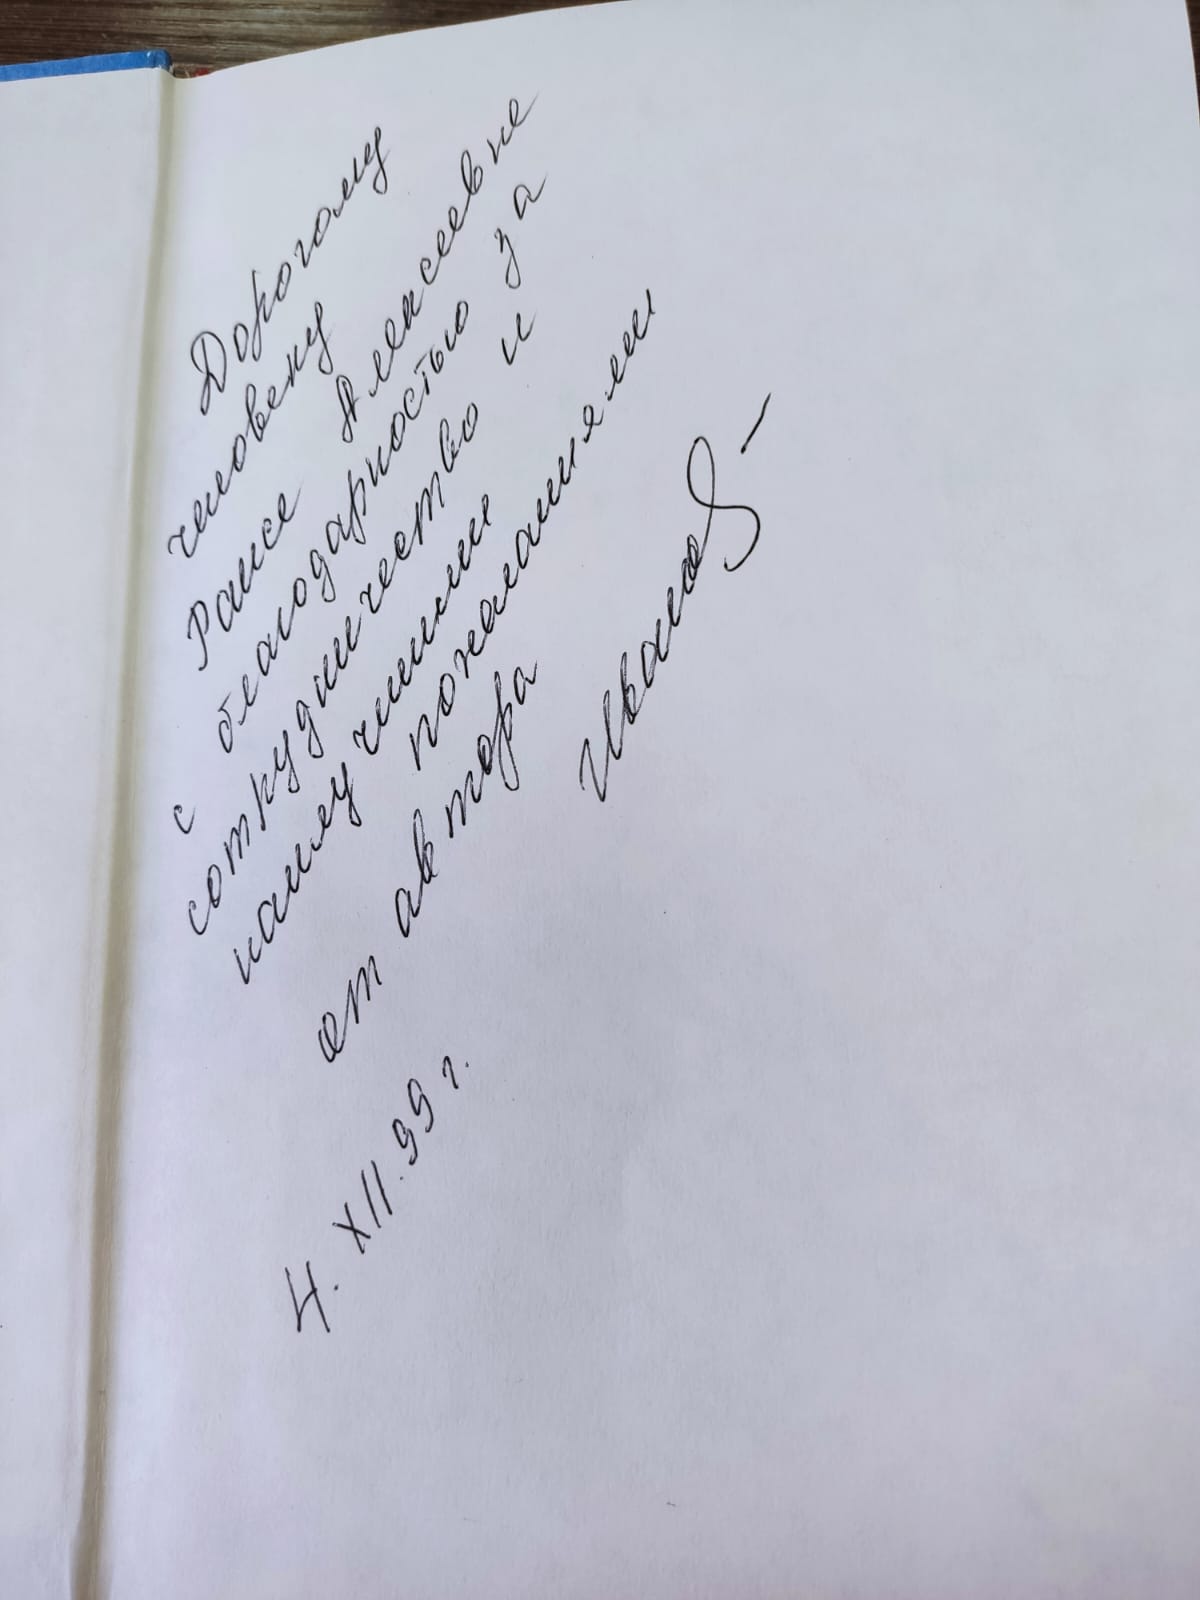 Дорогому
человеку
Раисе Алексеевне
с благодарностью за
сотрудничество и
наилучшими
пожеланиями
от автора
Иванов
4. XII. 99 г.